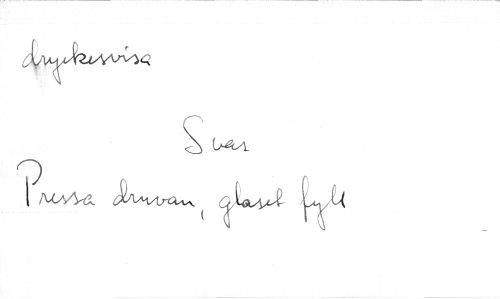 dryckesvisa
Svar
Pressa druvan, glaset fyll